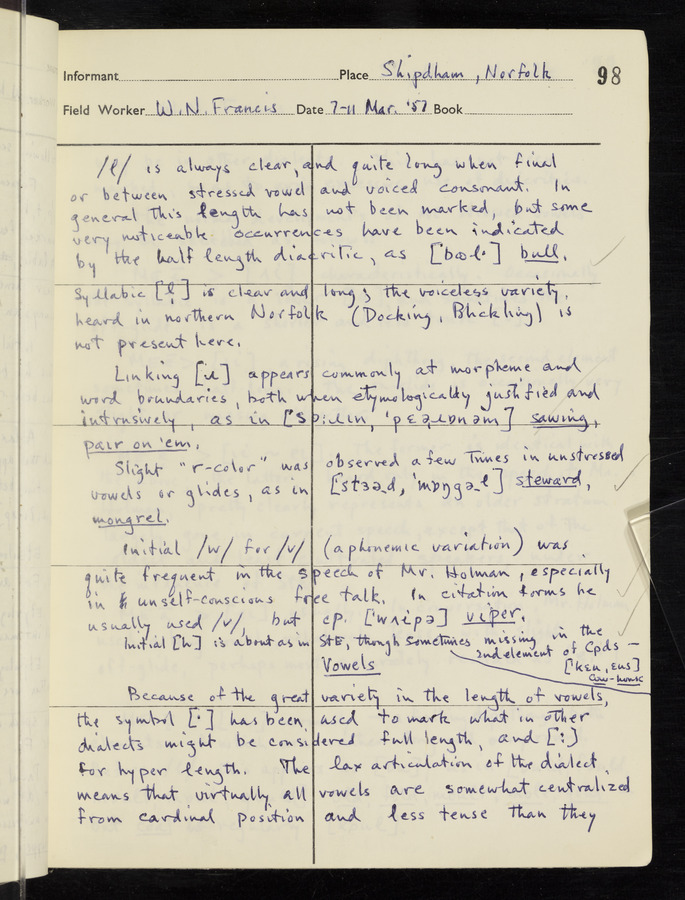 Informant Place Shipdham, Norfolk 98
Field Worker W.N. Francis Date 7-11 Mar. '57 Book
/l/ is always clear, and quite long when final
or between stressed vowel and voiced consonant. In
general this length has not been marked, but some
very noticeable occurrences have been indicated
by the half length diacritic, as [bɷlˑ] bull.
Syllabic [l̩] is clear and long; the voiceless variety,
heard in northern Norfolk (Docking, Blickling) is
not present here.
Linking [ɹ] appears commonly at morpheme and
word boundaries, both when etymologically justified and
intrusively, as in sawing,
pair on 'em.
Slight "r-color" was observed a few times in unstressed
vowels or glides, as in steward,
mongrel.
Initial /w/ for /v/ (a phonemic variation) was
quite frequent in the speech of Mr. Holman, especially
in unself-conscious free talk. In citation forms he
usually used /v/, but cp. ['wʌɪpə] viper.
Initial [h] is about as in StE, though sometimes missing in the
2nd element of Cpds –
['kɛu,ɛus]
Cow-house
Vowels
Because of the great variety in the length of vowels,
the symbol [ˑ] has been used to mark what in other
dialects might be considered full length, and [:]
for hyper length. The lax articulation of the dialect
means that virtually all vowels are somewhat centralized
from cardinal position and less tense than they